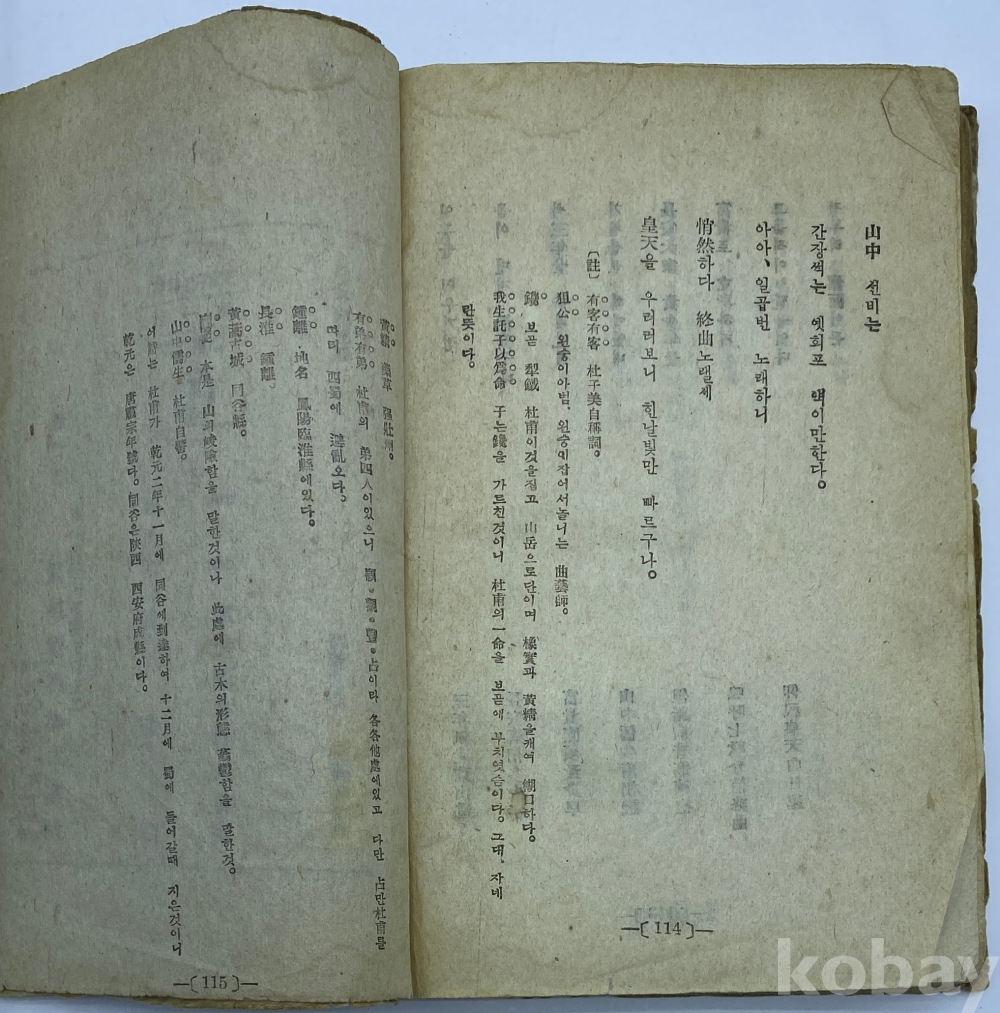 山中 선비는
간장썩는 옛회포 액이만한다。
아아、일곱번 노래하니
悄然하다 終曲노랠세
皇天을 우러러보니 힌날빛만 빠르구나。
〔註〕 有客有客 杜子美自稱詞。
狙公 원숭이아범、원숭이잡어서놀니는 曲藝師。
鑱 보곧 犁鐵 杜甫이것을집고 山岳으로단이며 橡實과 黃精을캐여 餬口하다。
我生託子以爲命 子는鑱을 가르친것이니 杜甫의一命을 보곧에 부치엿슴이다。그대、자네
란뜻이다。
—〔114〕—
黃精 藥草
有弟有弟 杜甫의 第四人이있으니 이라 各各他處에있고 다만 占만杜甫를
따며 西蜀에 避亂오다。
鍾離 地名 鳳陽臨淮縣에있다。
長淮 鍾離、
黃蒿古城 同谷縣。
本是 山의峻險함을 말한것이나 此處에 古木의形態 함을 말한것。
山中儒生 杜甫自謂。
이詩는 杜甫가 乾元二年十一月에 同谷에到達하여 十二月에 蜀에 들어갈때 지은것이니
乾元은 唐肅宗年號다。同谷은陝西 西安府成縣이다。
—〔115〕—
kobay